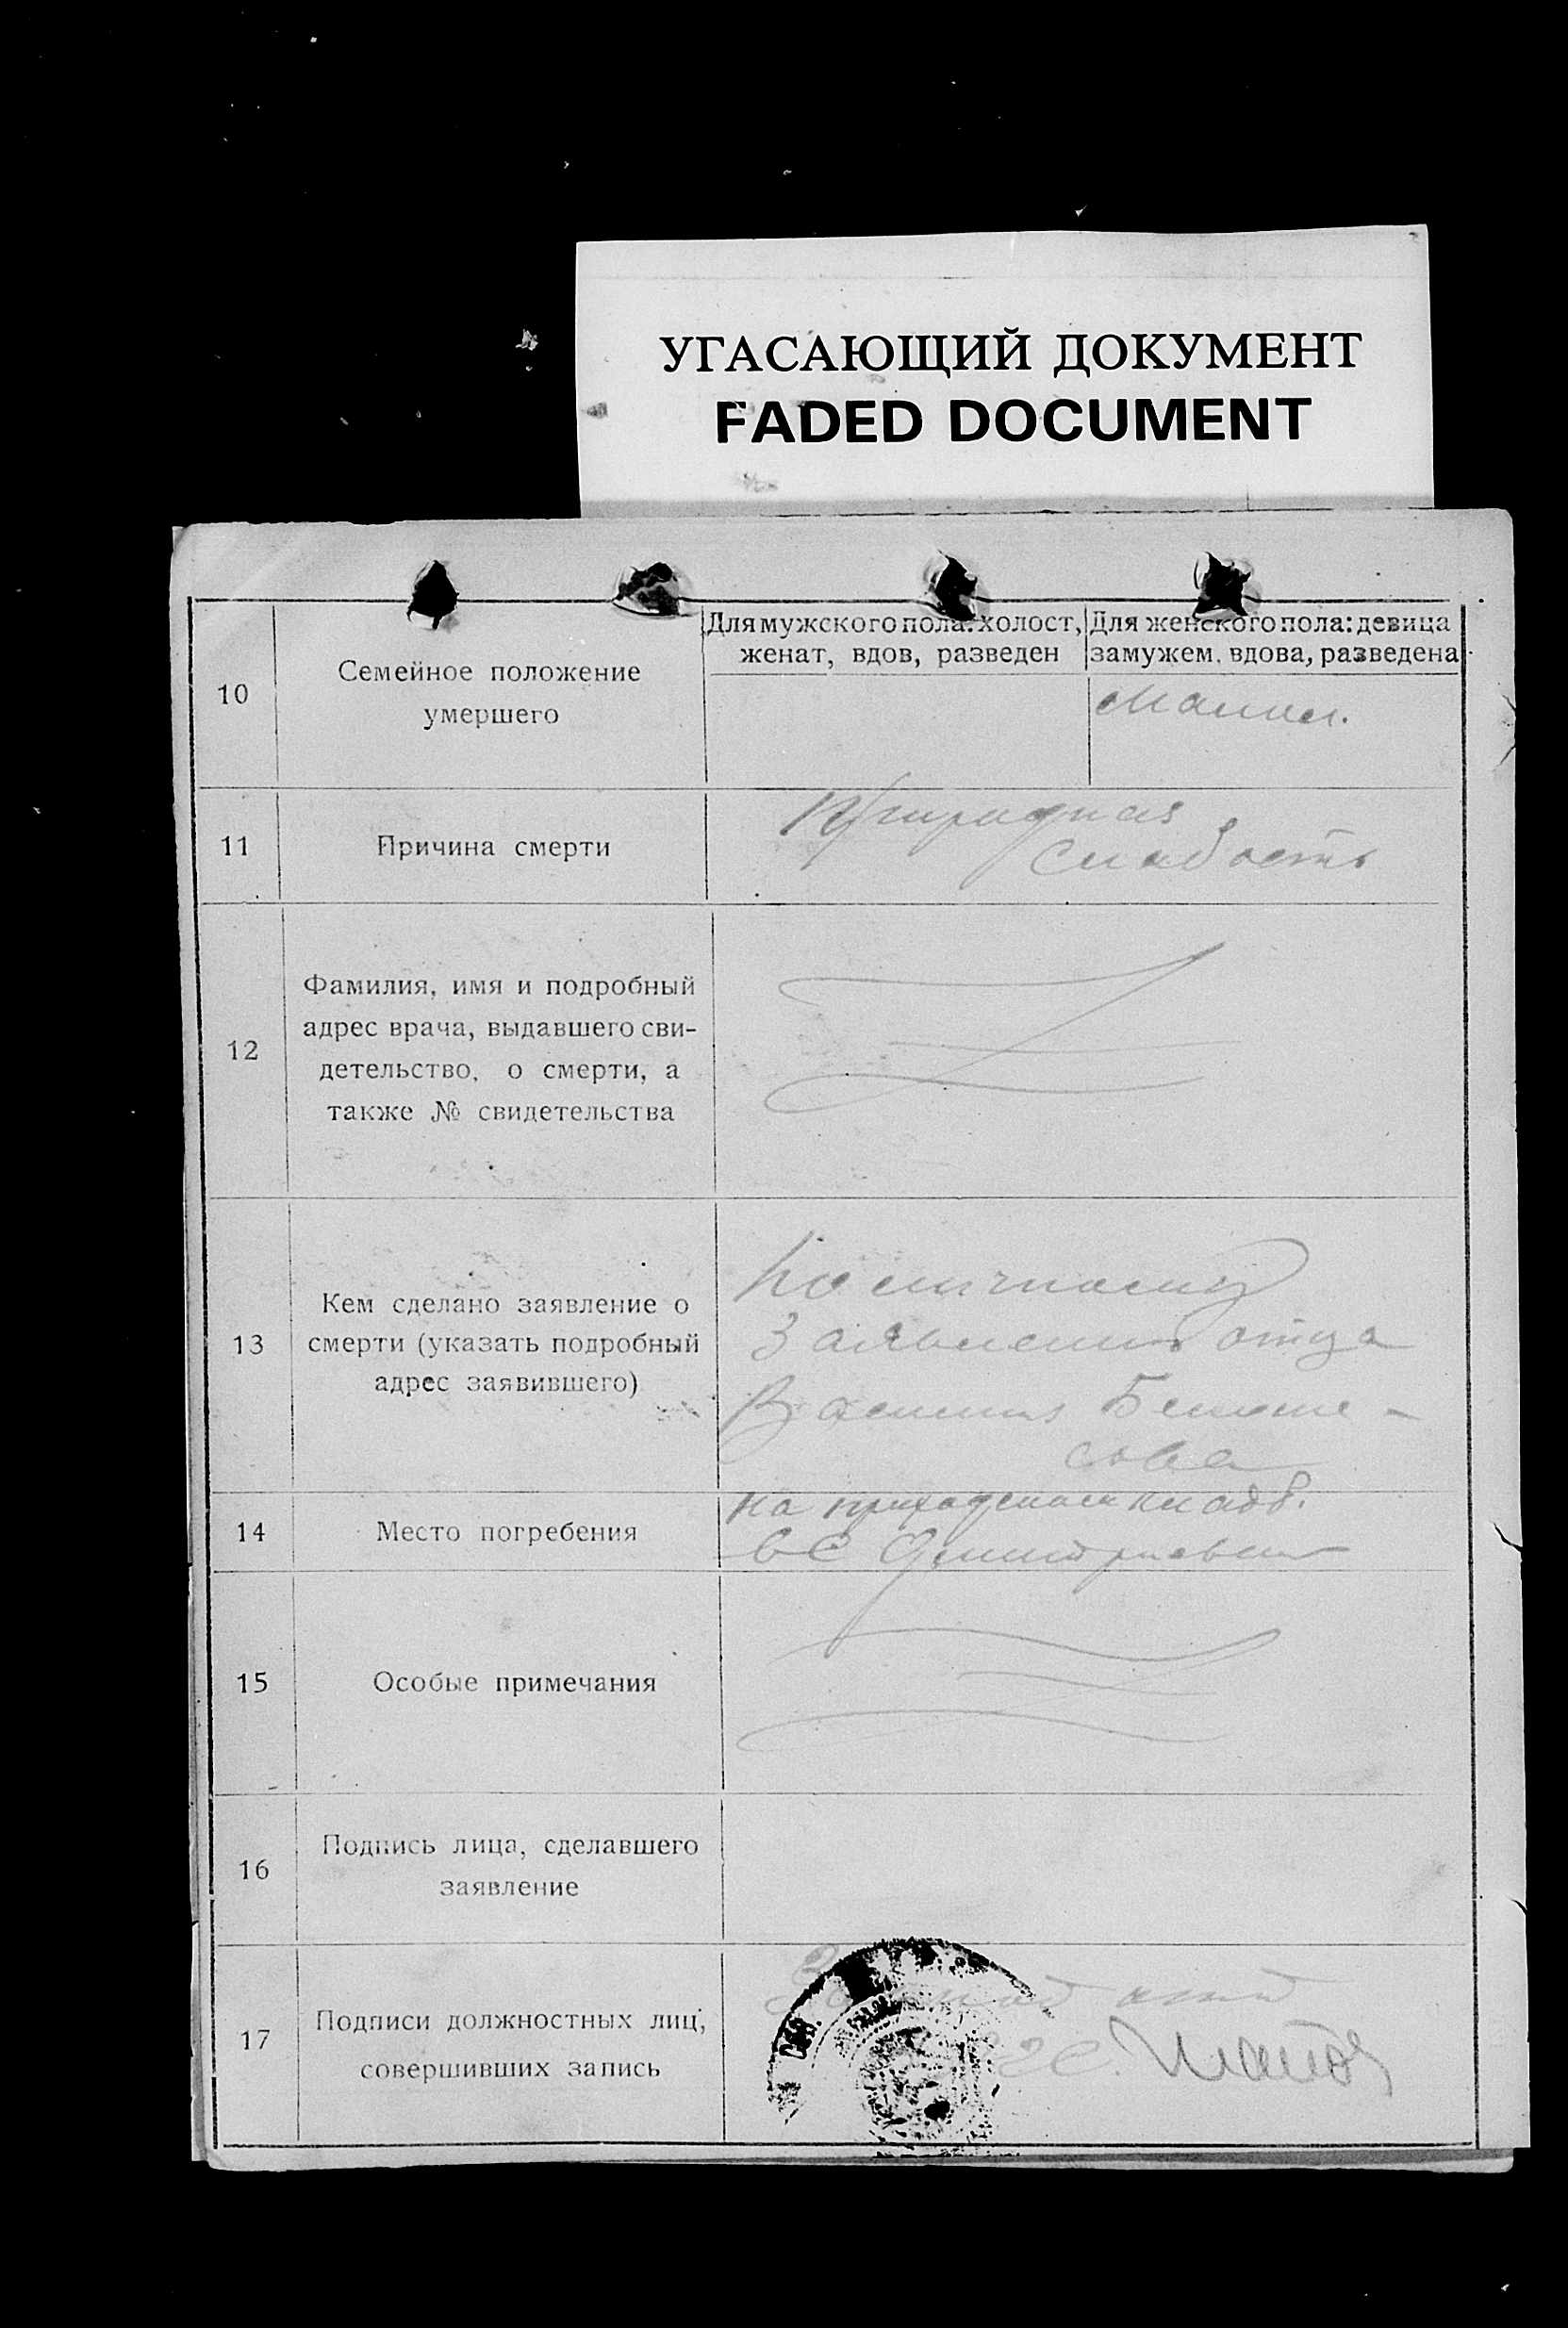 УГАСАЮЩИЙ ДОКУМЕНТ
FADED DOCUMENT
10
Семейное положение
умершего
Для мужского пола: холост,
женат, вдов, разведен
Для женского пола: девица
замужем, вдова, разведена
11
Причина смерти
Природная
слабость
12
Фамилия, имя и подробный
адрес врача, выдавшего сви-
детельство, о смерти, а
также № свидетельства
13
Кем сделано заявление о
смерти (указать подробный
адрес заявившего)
По личному
заявлению отца
Василия
14
Место погребения
на приходском кладб.
в с Дмитриевке
15
Особые примечания
16
Подпись лица, сделавшего
заявление
17
Подписи должностных лиц,
совершивших запись